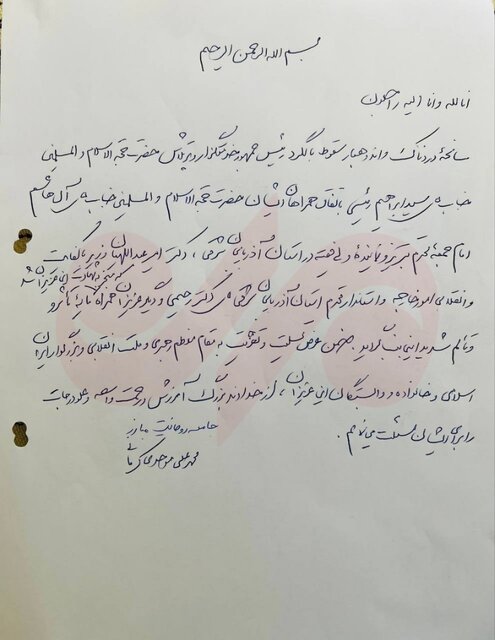 بسم الله الرحمن الرحیم
انا لله و انا الیه راجعون
سانحهٔ دردناک و اندوهبار سقوط بالگرد رئیس جمهور خدمتگزار و پرتلاش حضرت حجة الاسلام و المسلمین
جناب آقای سید ابراهیم رئیسی باتفاق همراهان ایشان حضرت حجة الاسلام و المسلمین جناب آقای آل هاشم
امام جمعه محترم تبریز و نماینده ولی فقیه در استان آذربایجان شرقی، دکتر امیر عبداللهیان وزیر با کفایت
که منجر به شهادت این عزیزان شد
و انقلابی امور خارجه و استاندار محترم استان آذربایجان شرقی آقای دکتر رحمتی و دیگر عزیزان همراه مایهٔ تأثر
و تألم شدید اینجانب گردید. ضمن عرض تسلیت و تعزیت به مقام معظم رهبری و ملت انقلابی و بزرگوار ایران
اسلامی و خانواده و وابستگان این عزیزان، از خداوند بزرگ آمرزش و رحمت واسعه و علو درجات
را برای ایشان مسئلت می‌نمایم.
جامعه روحانیت مبارز
محمد علی موحدی کرمانی